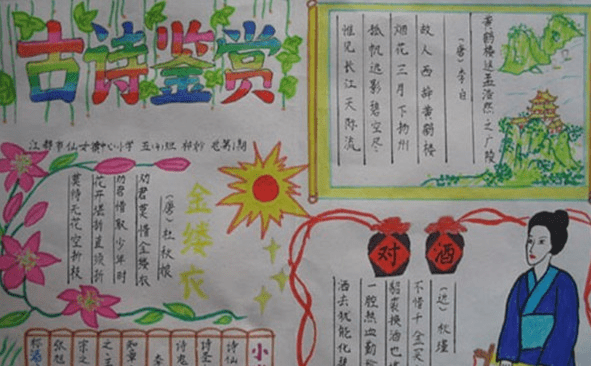 古诗鉴赏
江都市仙女镇中心小学
黄鹤楼送孟浩然之广陵
(唐)李白
故人西辞黄鹤楼
烟花三月下扬州
孤帆远影碧空尽
惟见长江天际流
金缕衣
(唐)杜秋娘
劝君莫惜金缕衣
劝君惜取少年时
花开堪折直须折
莫待无花空折枝
对酒
(近)秋瑾
不惜千金买
貂裘换酒也
一腔热血勤
洒去犹能化
小
诗仙
诗圣
诗鬼